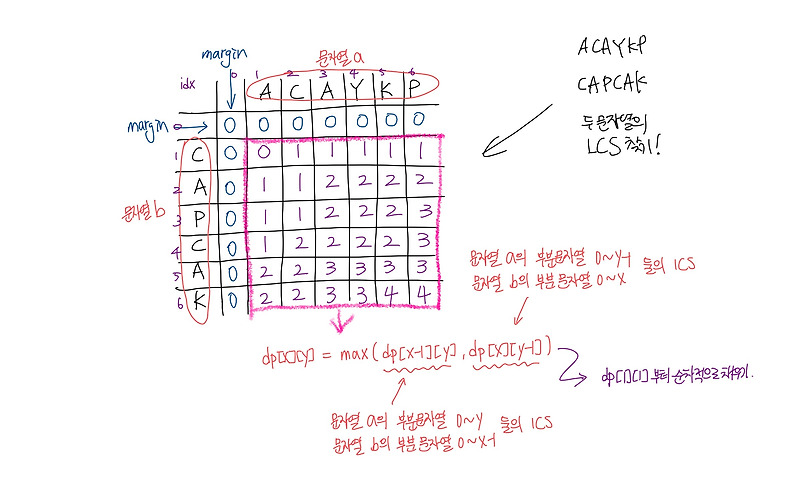 margin
문자열 a
idx 0 1 2 3 4 5 6
A C A Y K P
margin 0 0 0 0 0 0 0 0
1 C 0 0 1 1 1 1 1
2 A 0 1 1 2 2 2 2
3 P 0 1 1 2 2 2 3
4 C 0 1 2 2 2 2 3
5 A 0 2 2 3 3 3 3
6 K 0 2 2 3 3 4 4
문자열 b
ACAYKP
CAPCAK
두 문자열의
LCS 찾기!
문자열 a의 부분문자열 0~y-1
문자열 b의 부분문자열 0~x
들의 lCS
dp[x][y] = max(dp[x-1][y], dp[x][y-1])
dp[1][1] 부터 순차적으로 채우기.
문자열 a의 부분문자열 0~y
문자열 b의 부분문자열 0~x-1
들의 lCS